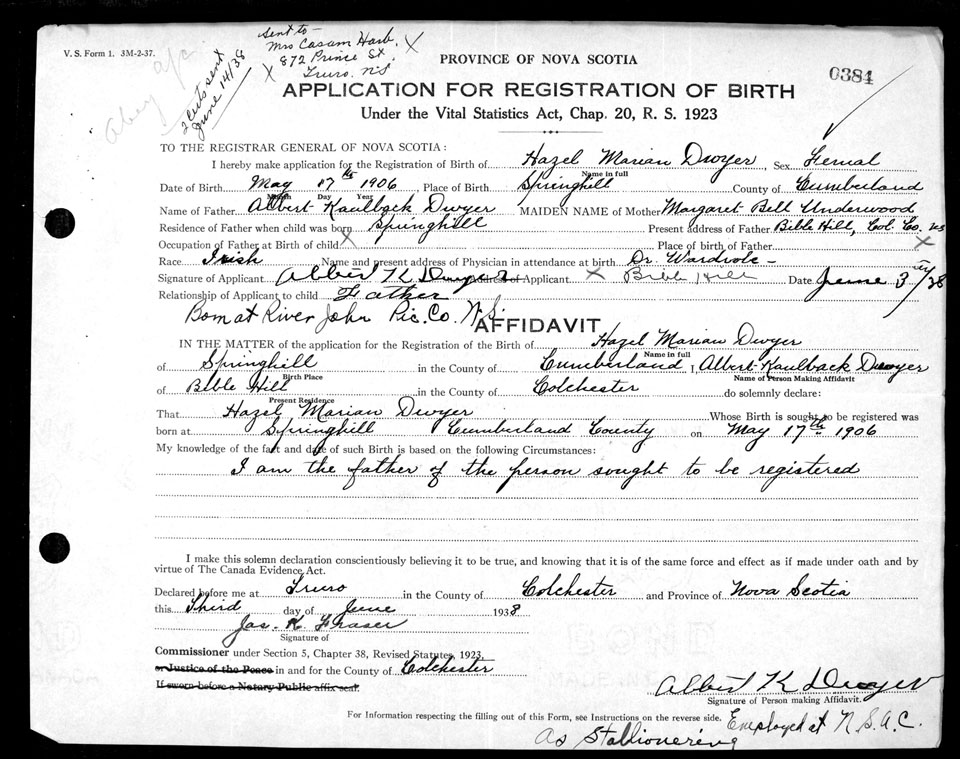 V. S. Form 1. 3M-2-37.
sent to-
Mrs Casam Harb,
872 Prince St.
Truro. N.S
2 Certs sent
June 14/38
PROVINCE OF NOVA SCOTIA
0384
APPLICATION FOR REGISTRATION OF BIRTH
Under the Vital Statistics Act, Chap. 20, R. S. 1923
TO THE REGISTRAR GENERAL OF NOVA SCOTIA:
I hereby make application for the Registration of Birth of Hazel Marian Dwyer, Sex Femal
Name in full
Date of Birth May 17th 1906 Place of Birth Springhill County of Cumberland
Month Day Year
Name of Father Albert Kaulback Dwyer MAIDEN NAME of Mother Margaret Bell Underwood
Residence of Father when child was born Springhill Present address of Father Bible Hill, Col. Co. NS
Occupation of Father at Birth of child X Place of birth of Father X
Race Irish Name and present address of Physician in attendance at birth Dr. Wardrole -
Signature of Applicant Albert K Dwyer Applicant X Bible Hill Date June 3 /38
Relationship of Applicant to child Father
Born at River John Pic. Co. N.S.
AFFIDAVIT
IN THE MATTER of the application for the Registration of the Birth of Hazel Marian Dwyer
Name in full
of Springhill in the County of Cumberland I, Albert Kaulback Dwyer
Birth Place Name of Person Making Affidavit
of Bible Hill in the County of Colchester do solemnly declare:
Present Residence
That Hazel Marian Dwyer Whose Birth is sought to be registered was
born at Springhill Cumberland County on May 17th 1906
My knowledge of the fact and date of such Birth is based on the following Circumstances:
I am the father of the person sought to be registered
I make this solemn declaration conscientiously believing it to be true, and knowing that it is of the same force and effect as if made under oath and by
virtue of The Canada Evidence Act.
Declared before me at Truro in the County of Colchester and Province of Nova Scotia
this Third day of June 1938
Jas. K. Fraser
Signature of
Commissioner under Section 5, Chapter 38, Revised Statutes, 1923,
or Justice of the Peace in and for the County of Colchester
If sworn before a Notary Public affix seal.
Albert K Dwyer
Signature of Person making Affidavit.
For Information respecting the filling out of this Form, see Instructions on the reverse side.
Employed at N.S.A.C.
As Stallioneering